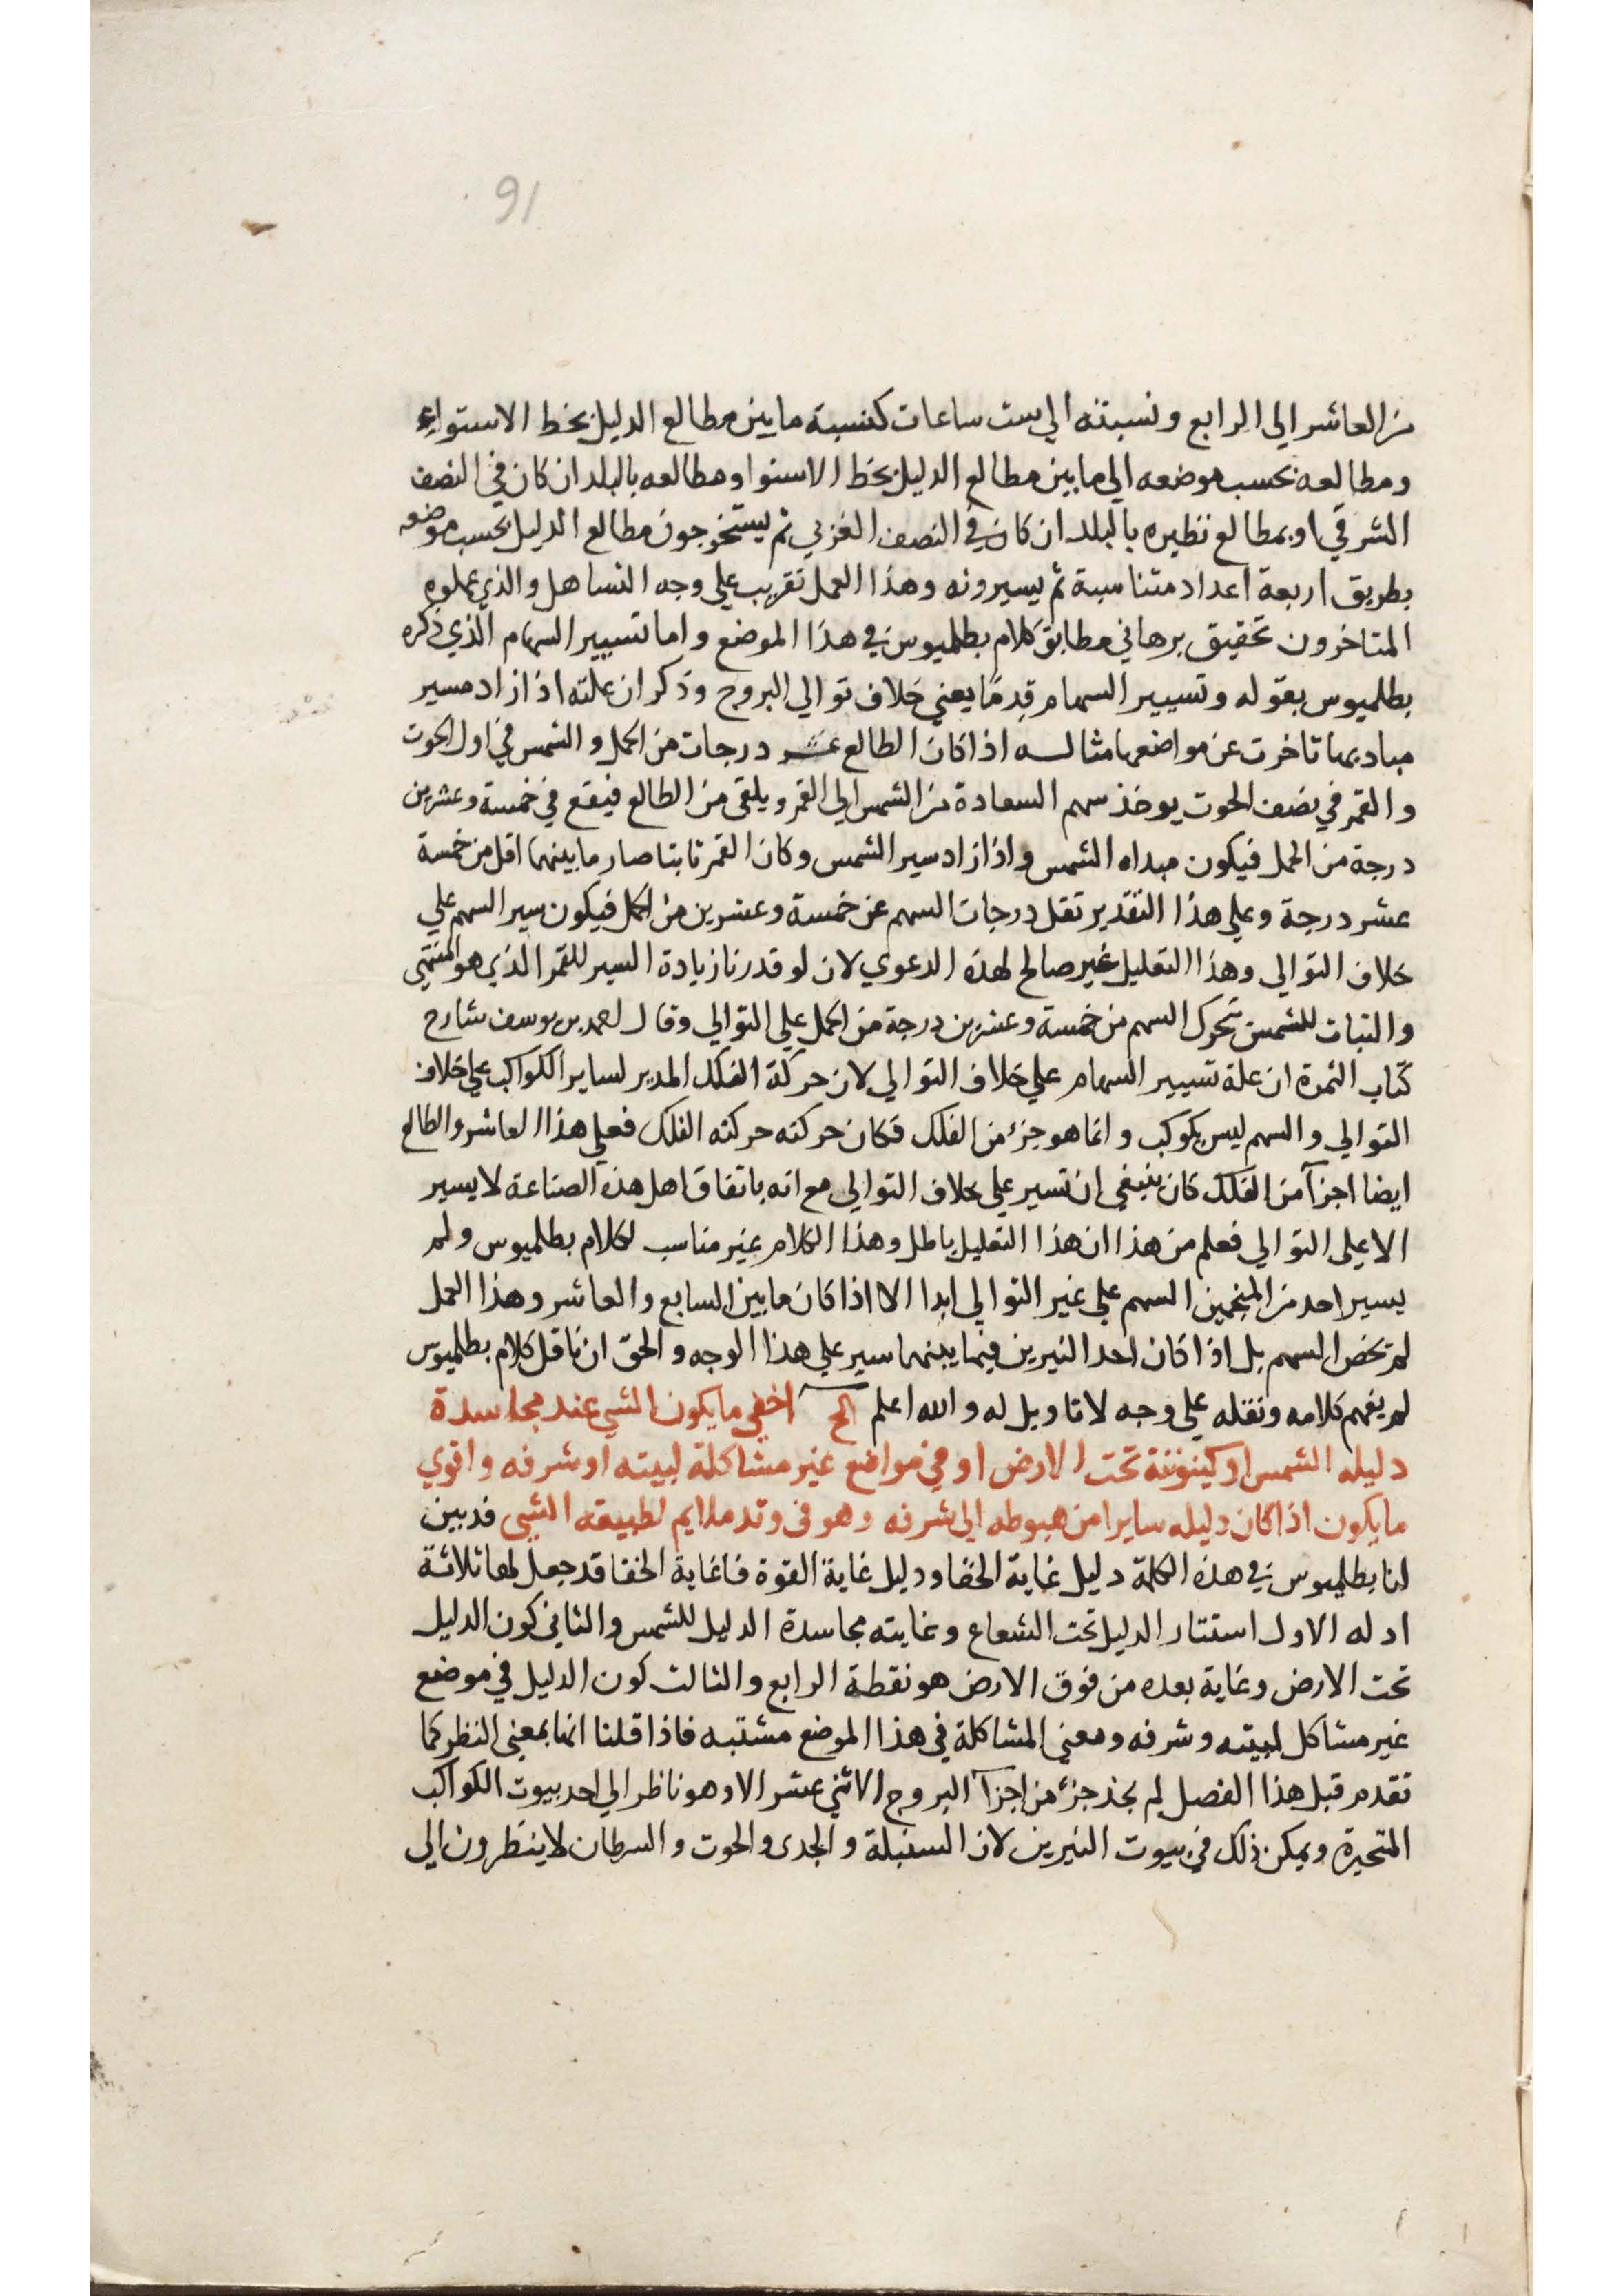 91
من العاشر الي الرابع ونسبته الي ست ساعات كنسبة ما بين مطالع الدليل بخط الاستواء
ومطالعه بحسب موضعه الي ما بين مطالع الدليل بخط الاستوا ومطالعه بالبلد ان كان في النصف
الشرقي او بمطالع نظيره بالبلد ان كان في النصف الغربي ثم يستخرجون مطالع الدليل بحسب موضعه
بطريق اربعة اعداد متناسبة ثم يسيرونه وهذا العمل تقريب علي وجه التساهل والذي عملوه
المتاخرون تحقيق برهاني مطابق كلام بطلميوس في هذا الموضع واما تسيير السهام الذي ذكره
بطلميوس بقوله وتسيير السهام قدما يعني خلاف توالي البروج وذكر ان علته اذا زاد مسير
مباديها تاخرت عن مواضعها مثاله اذا كان الطالع عشر درجات من الحمل والشمس في اول الحوت
والقمر في نصف الحوت يوخذ سهم السعادة من الشمس الي القمر ويلقى من الطالع فيقع في خمسة وعشرين
درجة من الحمل فيكون مبداه الشمس واذا زاد سير الشمس وكان القمر ثابتا صار ما بينهما اقل من خمسة
عشر درجة وعلي هذا التقدير تقل درجات السهم عن خمسة وعشرين من الحمل فيكون سير السهم علي
خلاف التوالي وهذا التعليل غير صالح لهذه الدعوي لان لو قدرنا زيادة السير للقمر الذي هو المنتهي
والثبات للشمس تحرك السهم من خمسة وعشرين درجة من الحمل علي التوالي وقال احمد بن يوسف شارح
كتاب الثمرة ان علة تسيير السهام علي خلاف التوالي لان حركة الفلك المدير لساير الكواكب علي خلاف
التوالي والسهم ليس بكوكب وانما هو جزء من الفلك فكان حركته حركته الفلك فعلي هذا العاشر والطالع
ايضا اجزآ من الفلك كان ينبغي ان تسير علي خلاف التوالي مع انه باتفاق اهل هذه الصناعة لا يسير
الا علي التوالي فعلم من هذا ان هذا التعليل باطل وهذا الكلام غير مناسب لكلام بطلميوس ولم
يسير احد من المنجمين السهم علي غير التوالي ابدا الا اذا كان ما بين السابع والعاشر وهذا العمل
لم تخص السهم بل اذا كان احد النيرين فيما بينهما سير علي هذا الوجه والحق ان ناقل كلام بطلميوس
لم يفهم كلامه ونقله علي وجه لا تاويل له والله اعلم اخفي ما يكون الشي عند مجاسدة
دليله الشمس او كينونته تحت الارض او في مواضع غير مشاكلة لبيته او شرفه واقوي
ما يكون اذا كان دليله سايرا من هبوطه الي شرفه وهو في وتد ملايم لطبيعه الشي قد بين
لنا بطلميوس في هذه الكلمة دليل غاية الخفا ودليل غاية القوة فاغاية الخفا قد جعل لها ثلاثة
ادله الاول استتار الدليل تحت الشعاع وغايته مجاسدة الدليل للشمس والثاني كون الدليل
تحت الارض وغاية بعده من فوق الارض هو نقطة الرابع والثالث كون الدليل في موضع
غير مشاكل لبيته وشرفه ومعني المشاكلة في هذا الموضع مشتبه فاذا قلنا انها بمعني النظر كما
تقدم قبل هذا الفصل لم نجد جزء من اجزآ البروج الاثني عشر الا وهو ناظر الي احد بيوت الكواكب
المتحيرة ويمكن ذلك في بيوت النيرين لان السنبلة والجدى والحوت والسرطان لا ينظرون الي